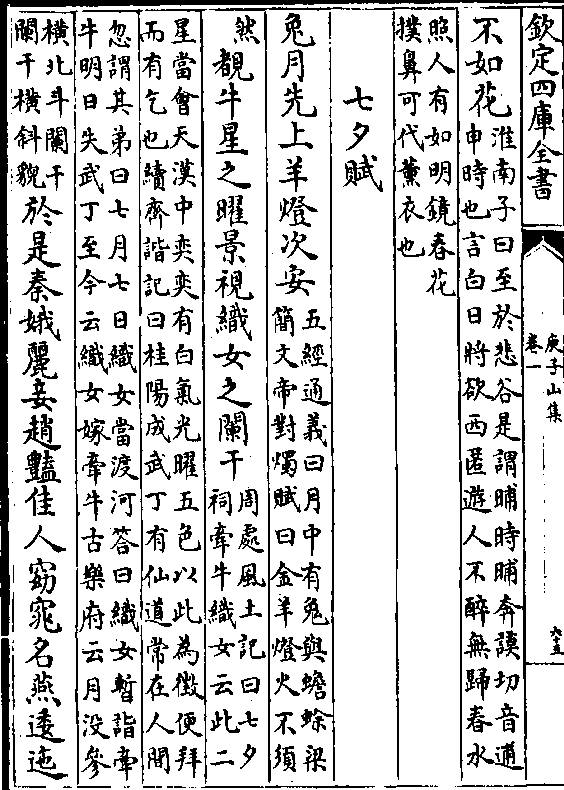 欽定四庫全書
庾子山集
卷一
不如花
淮南子曰至於悲谷是謂晡時晡奔謨切音逋
申時也言白日將欲西匿遊人不醉無歸春水
照人有如明鏡春花
撲鼻可代薰衣也
七夕賦
兎月先上羊燈次安
五經通義曰月中有兎與蟾蜍梁
簡文帝對燭賦曰金羊燈火不須
然
覩牛星之曜景視織女之闌干
周處風土記曰七夕
祠牽牛織女云此二
星當會天漢中奕奕有白氣光曜五色以此為徵便拜
而有乞也續齊諧記曰桂陽成武丁有仙道常在人間
忽謂其弟曰七月七日織女當渡河答曰織女暫詣牽
牛明日失武丁至今云織女嫁牽牛古樂府云月没參
橫北斗闌干
闌干橫斜貌
於是秦娥麗妾趙豔佳人窈窕名燕逶迤